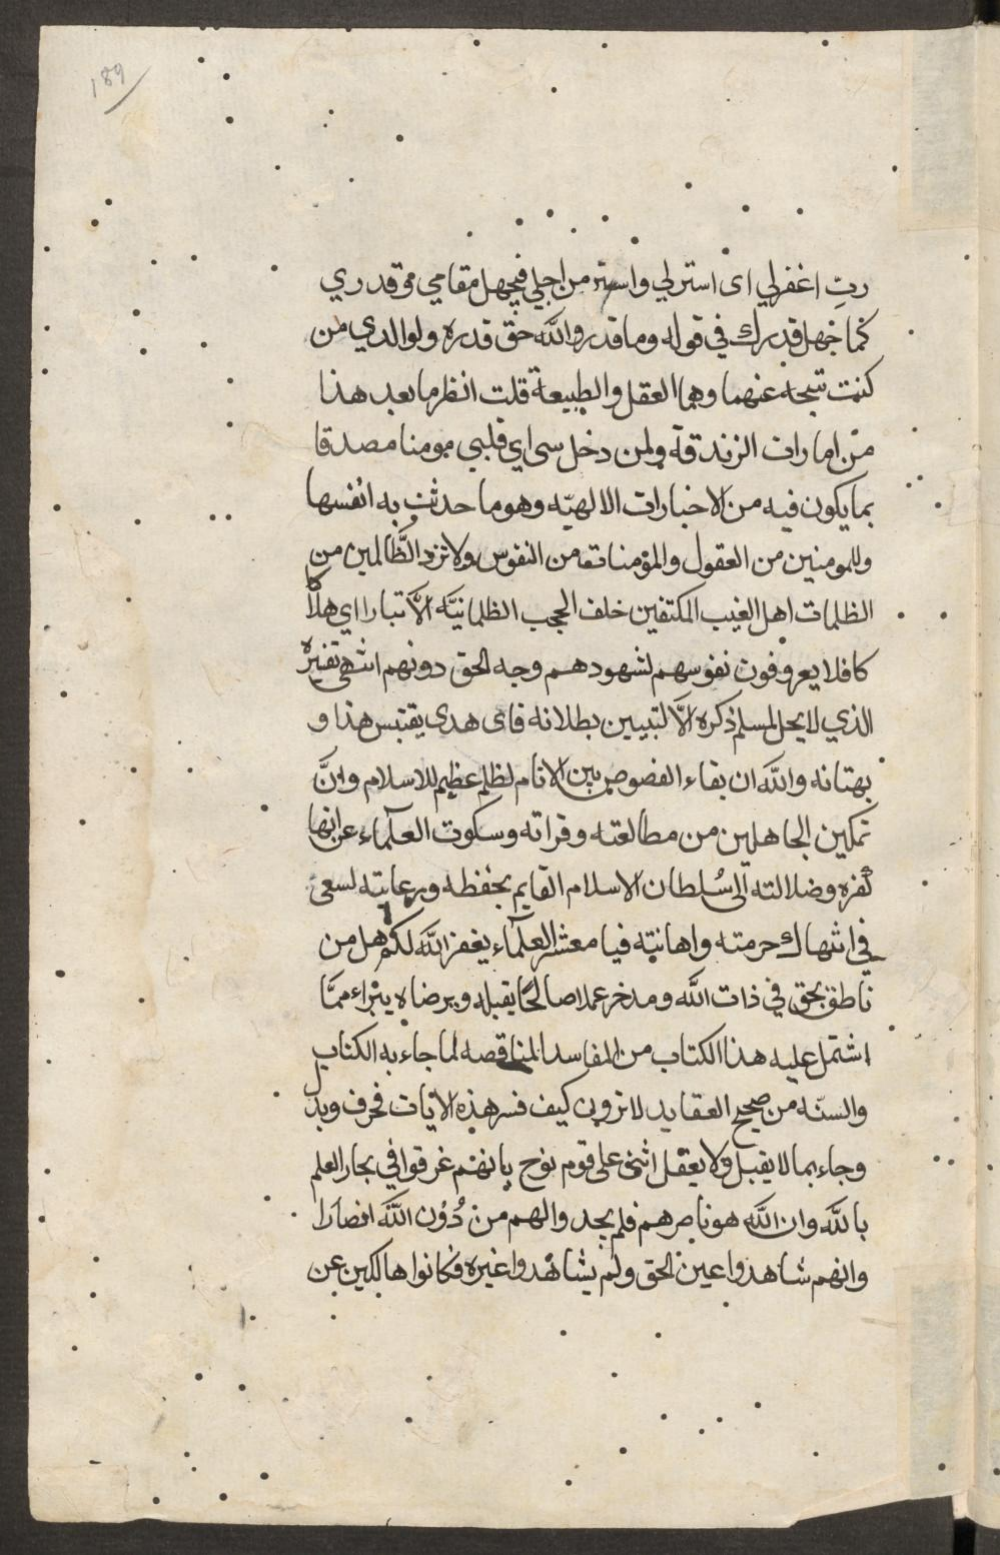 189
ربِّ اغفرلي اى استرلي واستر من اجلي فيجهل مقامي وقدري
كما جهل قدرك في قوله وما قدروا اللّه حق قدره ولوالدي من
كنت نتيجة عنهما وهما العقل والطبيعة قلت انظر ما بعد هذا
من امارات الزندقة ولمن دخل بيتي اي قلبي مومنا مصدقا
بما يكون فيه من الاخبارات الالهيّه وهو ما حدثت به انفسها
وللمومنين من العقول والمؤمنات من النفوس ولا تزد الظَّالمين من
الظلمات اهل الغيب المكتفين خلف الحجب الظلمانيَّه الاَّ تبارا اي هلا
كا فلا يعرفون نفوسهم لشهودهم وجه الحق دونهم انتهى تفسيره
الذي لا يحل لمسلم ذكره الاَّ لتبيين بطلانه فاى هدى يقتبس هذا و
بهتانه واللَّه ان بقاء الفصوص بين الانام لظلم عظيم للاسلام وانَّ
تمكين الجاهلين من مطالعته وقراته وسكوت العلماء عن انها
كفره وضلالته الى سُلطان الاسلام القايم بحفظه ورعايته لسعى
في انتهاك حرمته واهانته فيا معشر العلماء يغفر اللَّه لكم هل من
ناطق بحق في ذات اللَّه ومدخر عملا صالحًا يقبله ويرضاه يتبراء ممَّا
اشتمل عليه هذا الكتاب من المفاسد المناقصه لما جاء به الكتاب
والسنّه من صحيح العقايد لا ترون كيف فسر هذه الايات فحرف وبدل
وجاء بما لا يقبل ولا يعقل اثنى على قوم نوح بانهم غرقوا في بحار العلم
باللَّه وان اللَّه هو ناصرهم فلم يجدوا لهم من دُوُن اللَّه انصارا
وانهم شاهدوا عين الحق ولم يشاهدوا غيره فكانوا هالكين عن